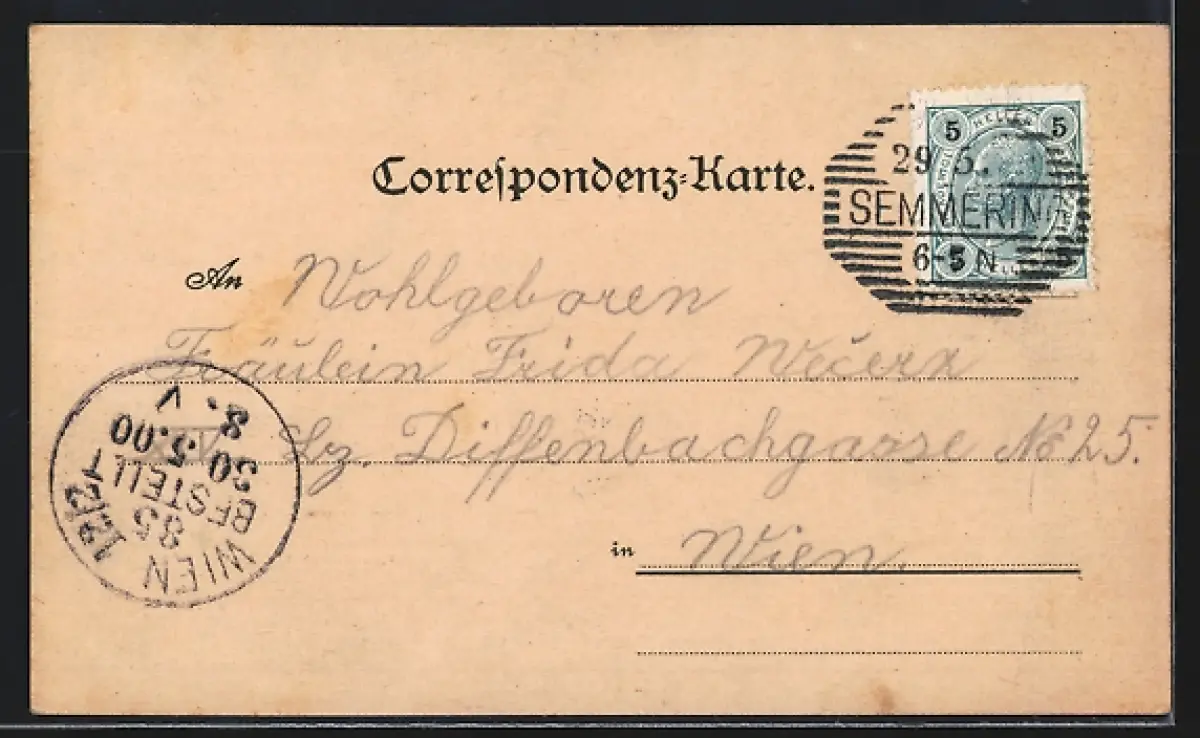 Correspondenz-Karte.
5 HELLER 5
29 5.
SEMMERING
6-5 N
An Wohlgeboren
Fräulein Frida Wečerx
Lz. Diffenbachgasse No 25.
in Wien.
WIEN 12/2
85
BESTELLT
30.5.00
8. V